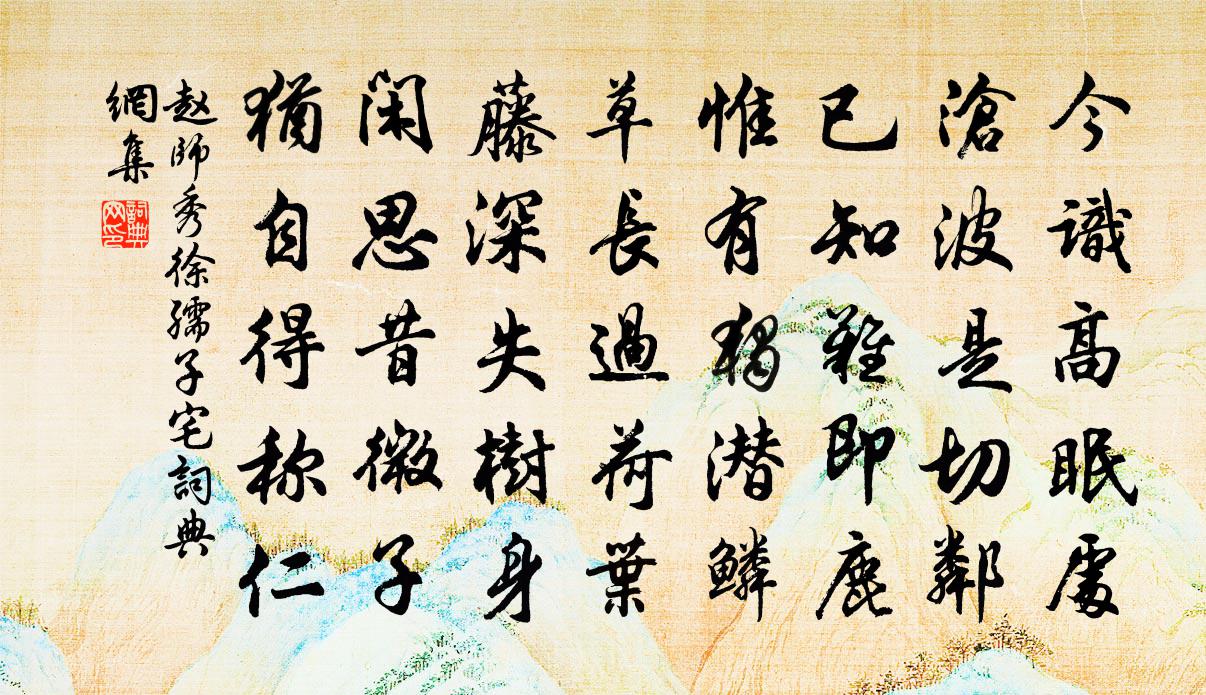 今識高眠處
滄波是切鄰
已知難即鹿
惟有獨潜鱗
草長過荷葉
藤深失樹身
闲思昔微子
猶自得称仁
赵師秀徐孺子宅詞典
網集
詞典
网印